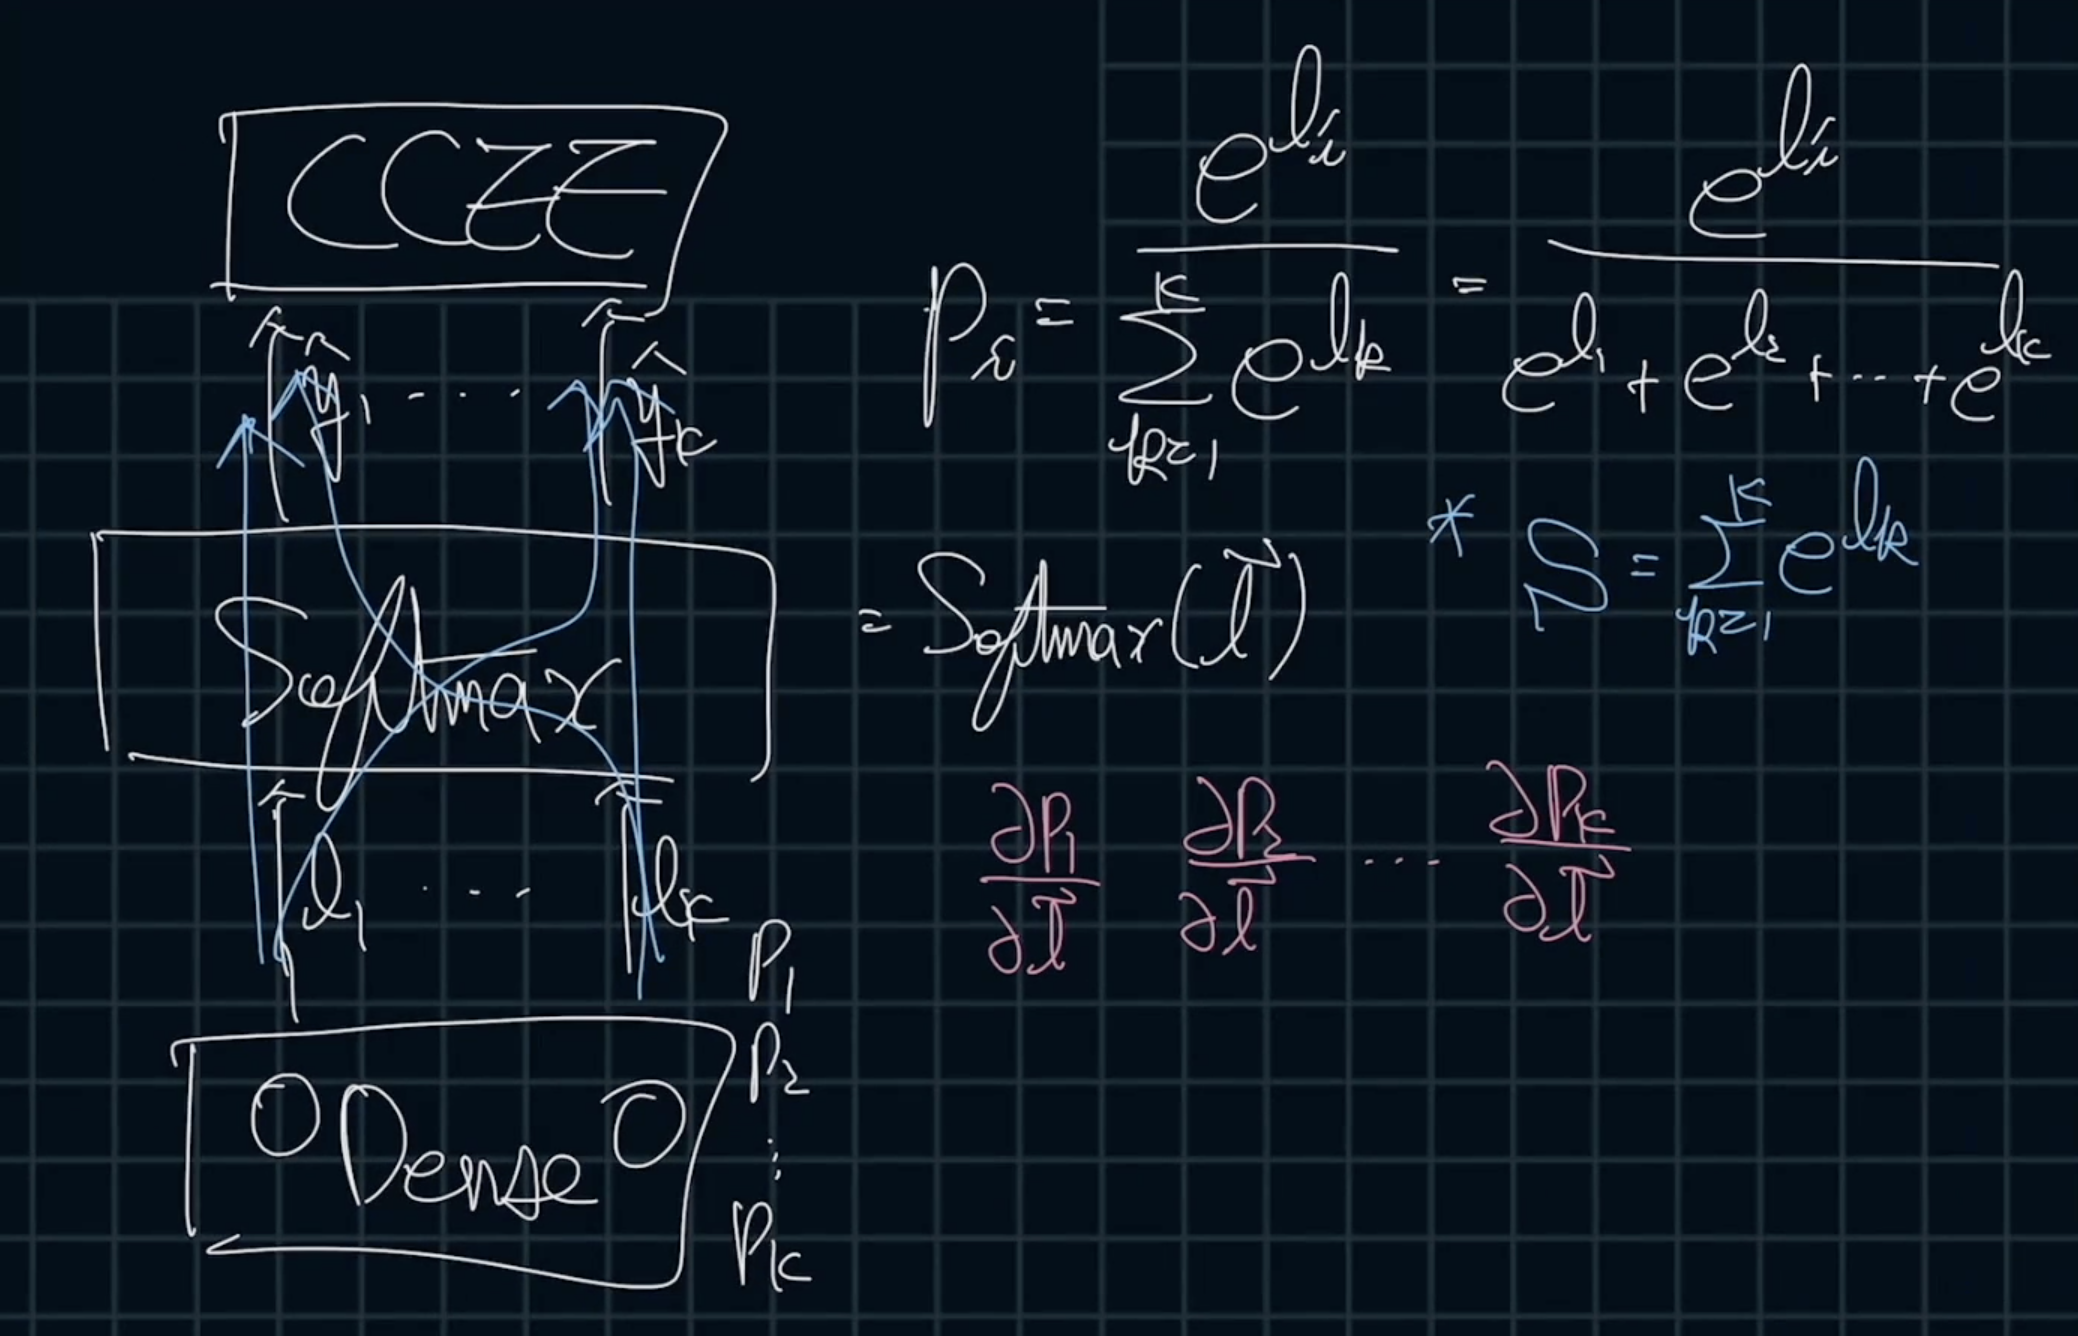 CCEE
ŷ₁ ... ŷ_K
Softmax
l₁ ... l_K
Dense
P₁
P₂
⋮
P_K
P_i = e^{l_i} / Σ_{k=1}^{K} e^{l_k} = e^{l_i} / (e^{l_1} + e^{l_2} + ... + e^{l_K})
= Softmax(l⃗)
* S = Σ_{k=1}^{K} e^{l_k}
∂P₁/∂l⃗ ∂P₂/∂l⃗ ... ∂P_K/∂l⃗